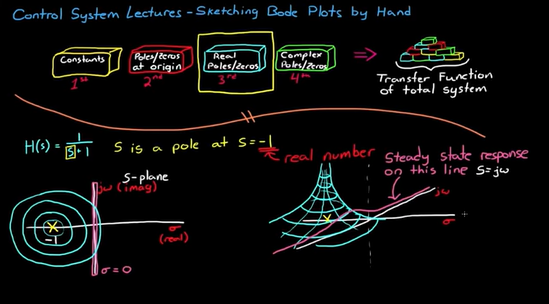 Control System Lectures - Sketching Bode Plots by Hand
Constants
Poles/Zeros at origin
Real Poles/Zeros
Complex Poles/Zeros
1st
2nd
3rd
4th
Transfer Function
of total system
H(s) = 1/(s+1)
S is a pole at S=-1
real number
Steady state response
on this line S=jω
S-plane
jω (imag)
jω
σ
(real)
σ
-1
σ=0